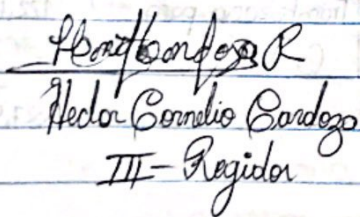 Hector Cornelio Cardoza
III - Regidor